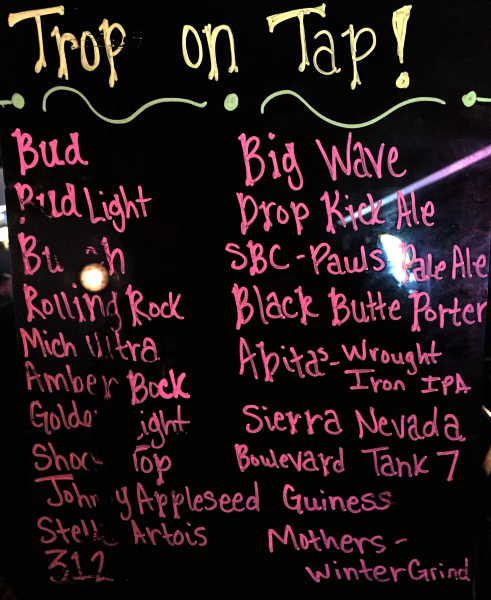 Trop on Tap!
Bud
Bud Light
Rolling Rock
Mich Ultra
Amber Bock
Top
Appleseed
Stella Artois
312
Big Wave
Drop Kick Ale
SBC - Pauls Pale Ale
Black Butte Porter
Abitas - Wrought
Iron IPA
Sierra Nevada
Boulevard Tank 7
Guiness
Mothers -
Winter Grind